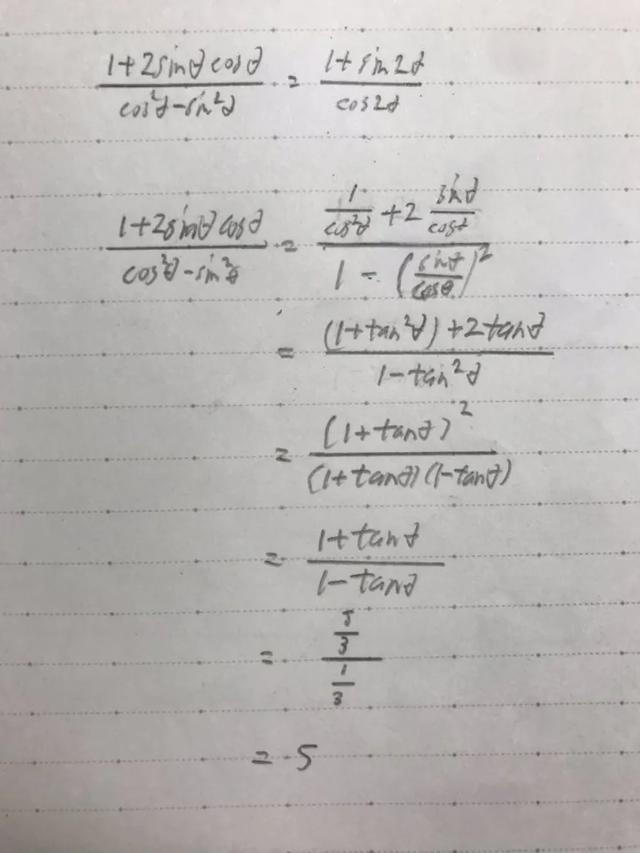 (1+2sinθcosθ)/(cos²θ-sin²θ) = (1+sin2θ)/(cos2θ)
(1+2sinθcosθ)/(cos²θ-sin²θ) = (1/(cos²θ)+2 (sinθ)/(cosθ))/(1-((sinθ)/(cosθ))²)
= ((1+tan²θ)+2tanθ)/(1-tan²θ)
= (1+tanθ)²/((1+tanθ)(1-tanθ))
= (1+tanθ)/(1-tanθ)
= (5/3)/(1/3)
= 5